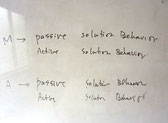 M → passive solution Behavior
Active Solution Behavior
A → passive Solution Behavior
Active Solution Behavior